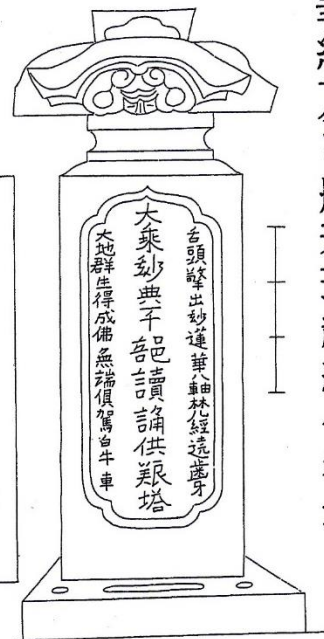 舌頭擎出玅蓮華八軸梵經遶齒牙
大乘玅典千部讀誦供養塔
大地群生得成佛無端俱駕白牛車